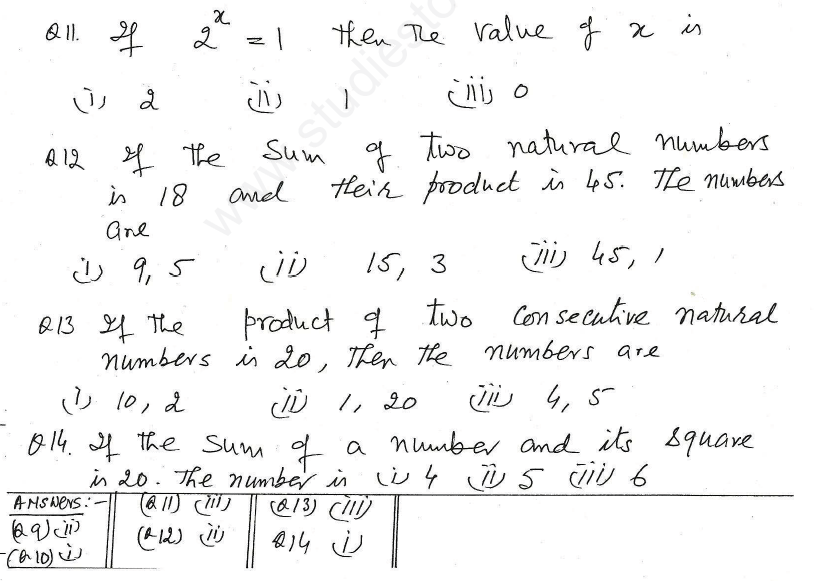 Q11. If 2^x = 1 then the value of x is
(i) 2 (ii) 1 (iii) 0
Q12 If the sum of two natural numbers
is 18 and their product is 45. The numbers
are
(i) 9, 5 (ii) 15, 3 (iii) 45, 1
Q13 If the product of two consecutive natural
numbers is 20, then the numbers are
(i) 10, 2 (ii) 1, 20 (iii) 4, 5
Q14. If the sum of a number and its square
is 20. The number is (i) 4 (ii) 5 (iii) 6
ANSWERS:- (Q11) (iii) (Q13) (iii)
(Q9) (ii) (Q12) (ii) Q14 (i)
(Q10) (i)